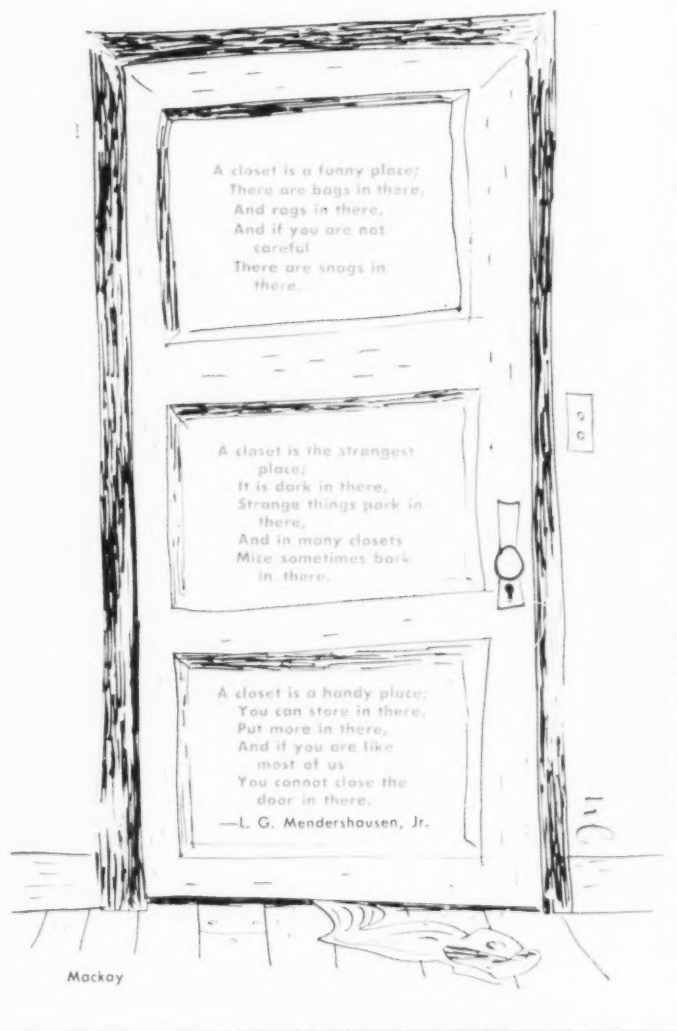 A closet is a funny place;
There are bags in there,
And rags in there,
And if you are not
careful
There are snags in
there.
A closet is the strangest
place;
It is dark in there,
Strange things park in
there,
And in many closets
Mice sometimes bark
in there.
A closet is a handy place;
You can store in there,
Put more in there,
And if you are like
most of us
You cannot close the
door in there.
—L. G. Mendershausen, Jr.
Mackay